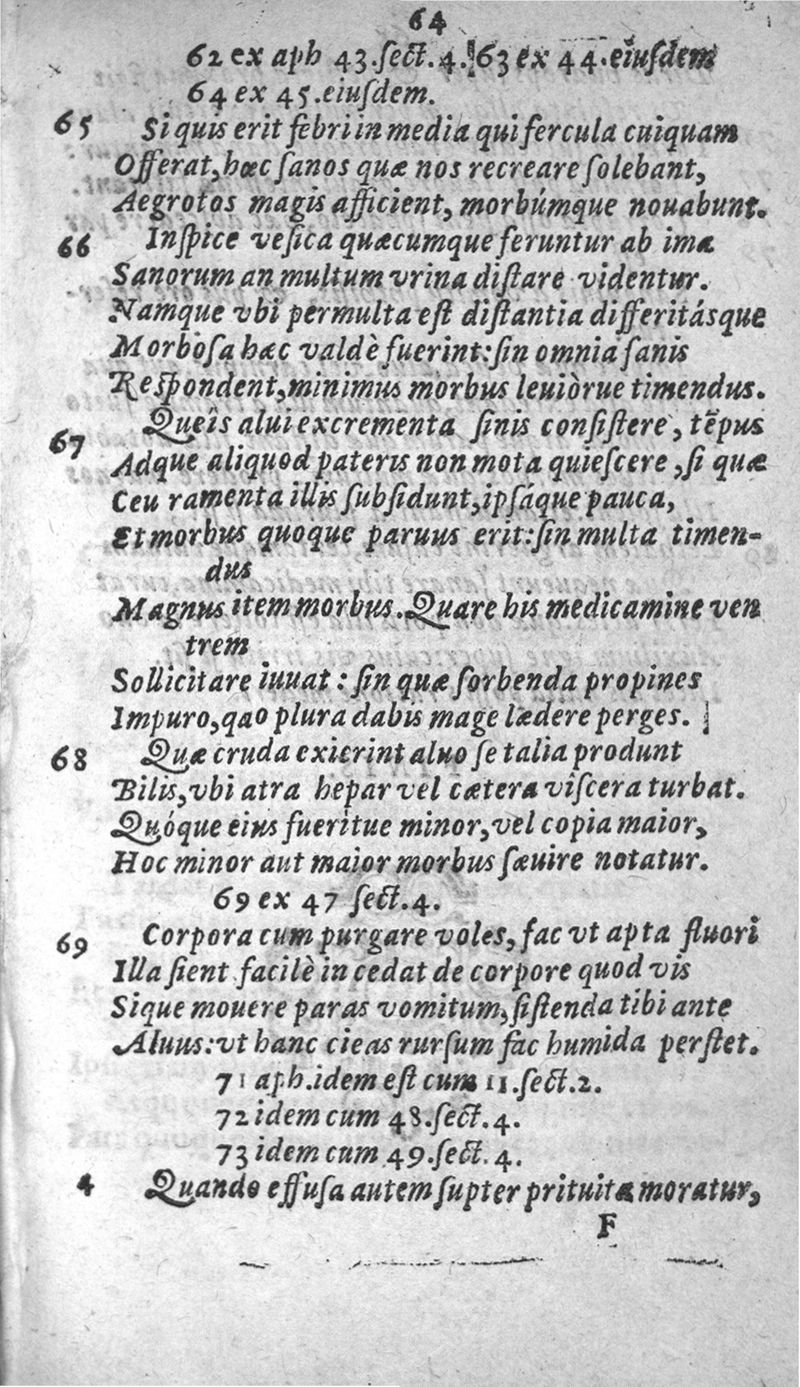 64
62 ex aph 43.ſect.4. 63 ex 44.eiuſdem
64 ex 45.eiuſdem.
65 Si quis erit febri in media qui fercula cuiquam
Offerat, hæc ſanos quæ nos recreare ſolebant,
Aegrotos magis afficient, morbúmque nouabunt.
66 Inſpice veſica quæcumque feruntur ab ima
Sanorum an multum vrina diſtare videntur.
Namque vbi permulta eſt diſtantia differitásque
Morboſa hæc valdè fuerint: ſin omnia ſanis
Reſpondent, minimus morbus leuiòrue timendus.
67 Queîs alui excrementa ſinis conſiſtere, tẽpus
Adque aliquod pateris non mota quieſcere, ſi quæ
Ceu ramenta illis ſubſidunt, ipſáque pauca,
Et morbus quoque paruus erit: ſin multa timen-
dus
Magnus item morbus. Quare his medicamine ven
trem
Sollicitare iuuat: ſin quæ ſorbenda propines
Impuro, qao plura dabis mage lædere perges.
68 Quæ cruda exierint aluo ſe talia produnt
Bilis, vbi atra hepar vel cætera viſcera turbat.
Quóque eius fueritue minor, vel copia maior,
Hoc minor aut maior morbus ſæuire notatur.
69 ex 47 ſect.4.
69 Corpora cum purgare voles, fac vt apta fluori
Illa ſient facilè in cedat de corpore quod vis
Sique mouere paras vomitum, ſiſtenda tibi ante
Aluus: vt hanc cieas rurſum fac humida perſtet.
71 aph.idem eſt cum 11.ſect.2.
72 idem cum 48.ſect.4.
73 idem cum 49.ſect.4.
4 Quando effuſa autem ſupter prituita moratur,
F